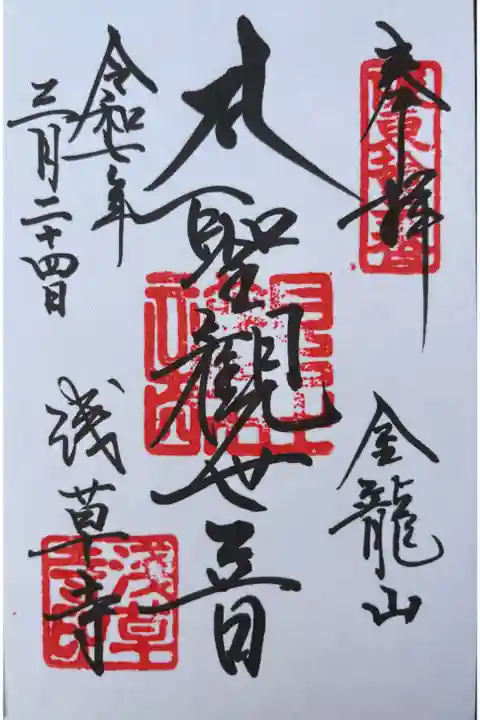 奉拝
金龍山
聖観世音
令和七年
三月二十四日
浅草寺
浅草